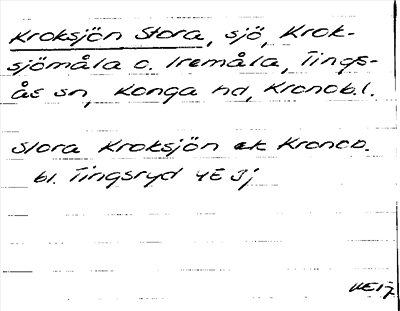 Kroksjön Stora, sjö, Krok-
sjömåla o. Iremåla, Tings-
ås sn, Konga hd, Kronob.l.
Stora Kroksjön ek Kronob.
bl. Tingsryd 4E 3j